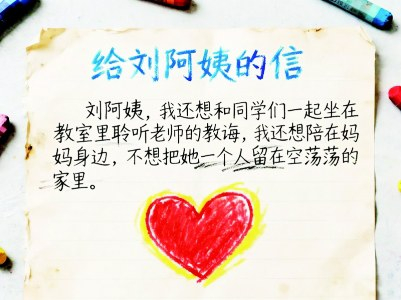 给刘阿姨的信
刘阿姨，我还想和同学们一起坐在
教室里聆听老师的教诲，我还想陪在妈
妈身边，不想把她一个人留在空荡荡的
家里。